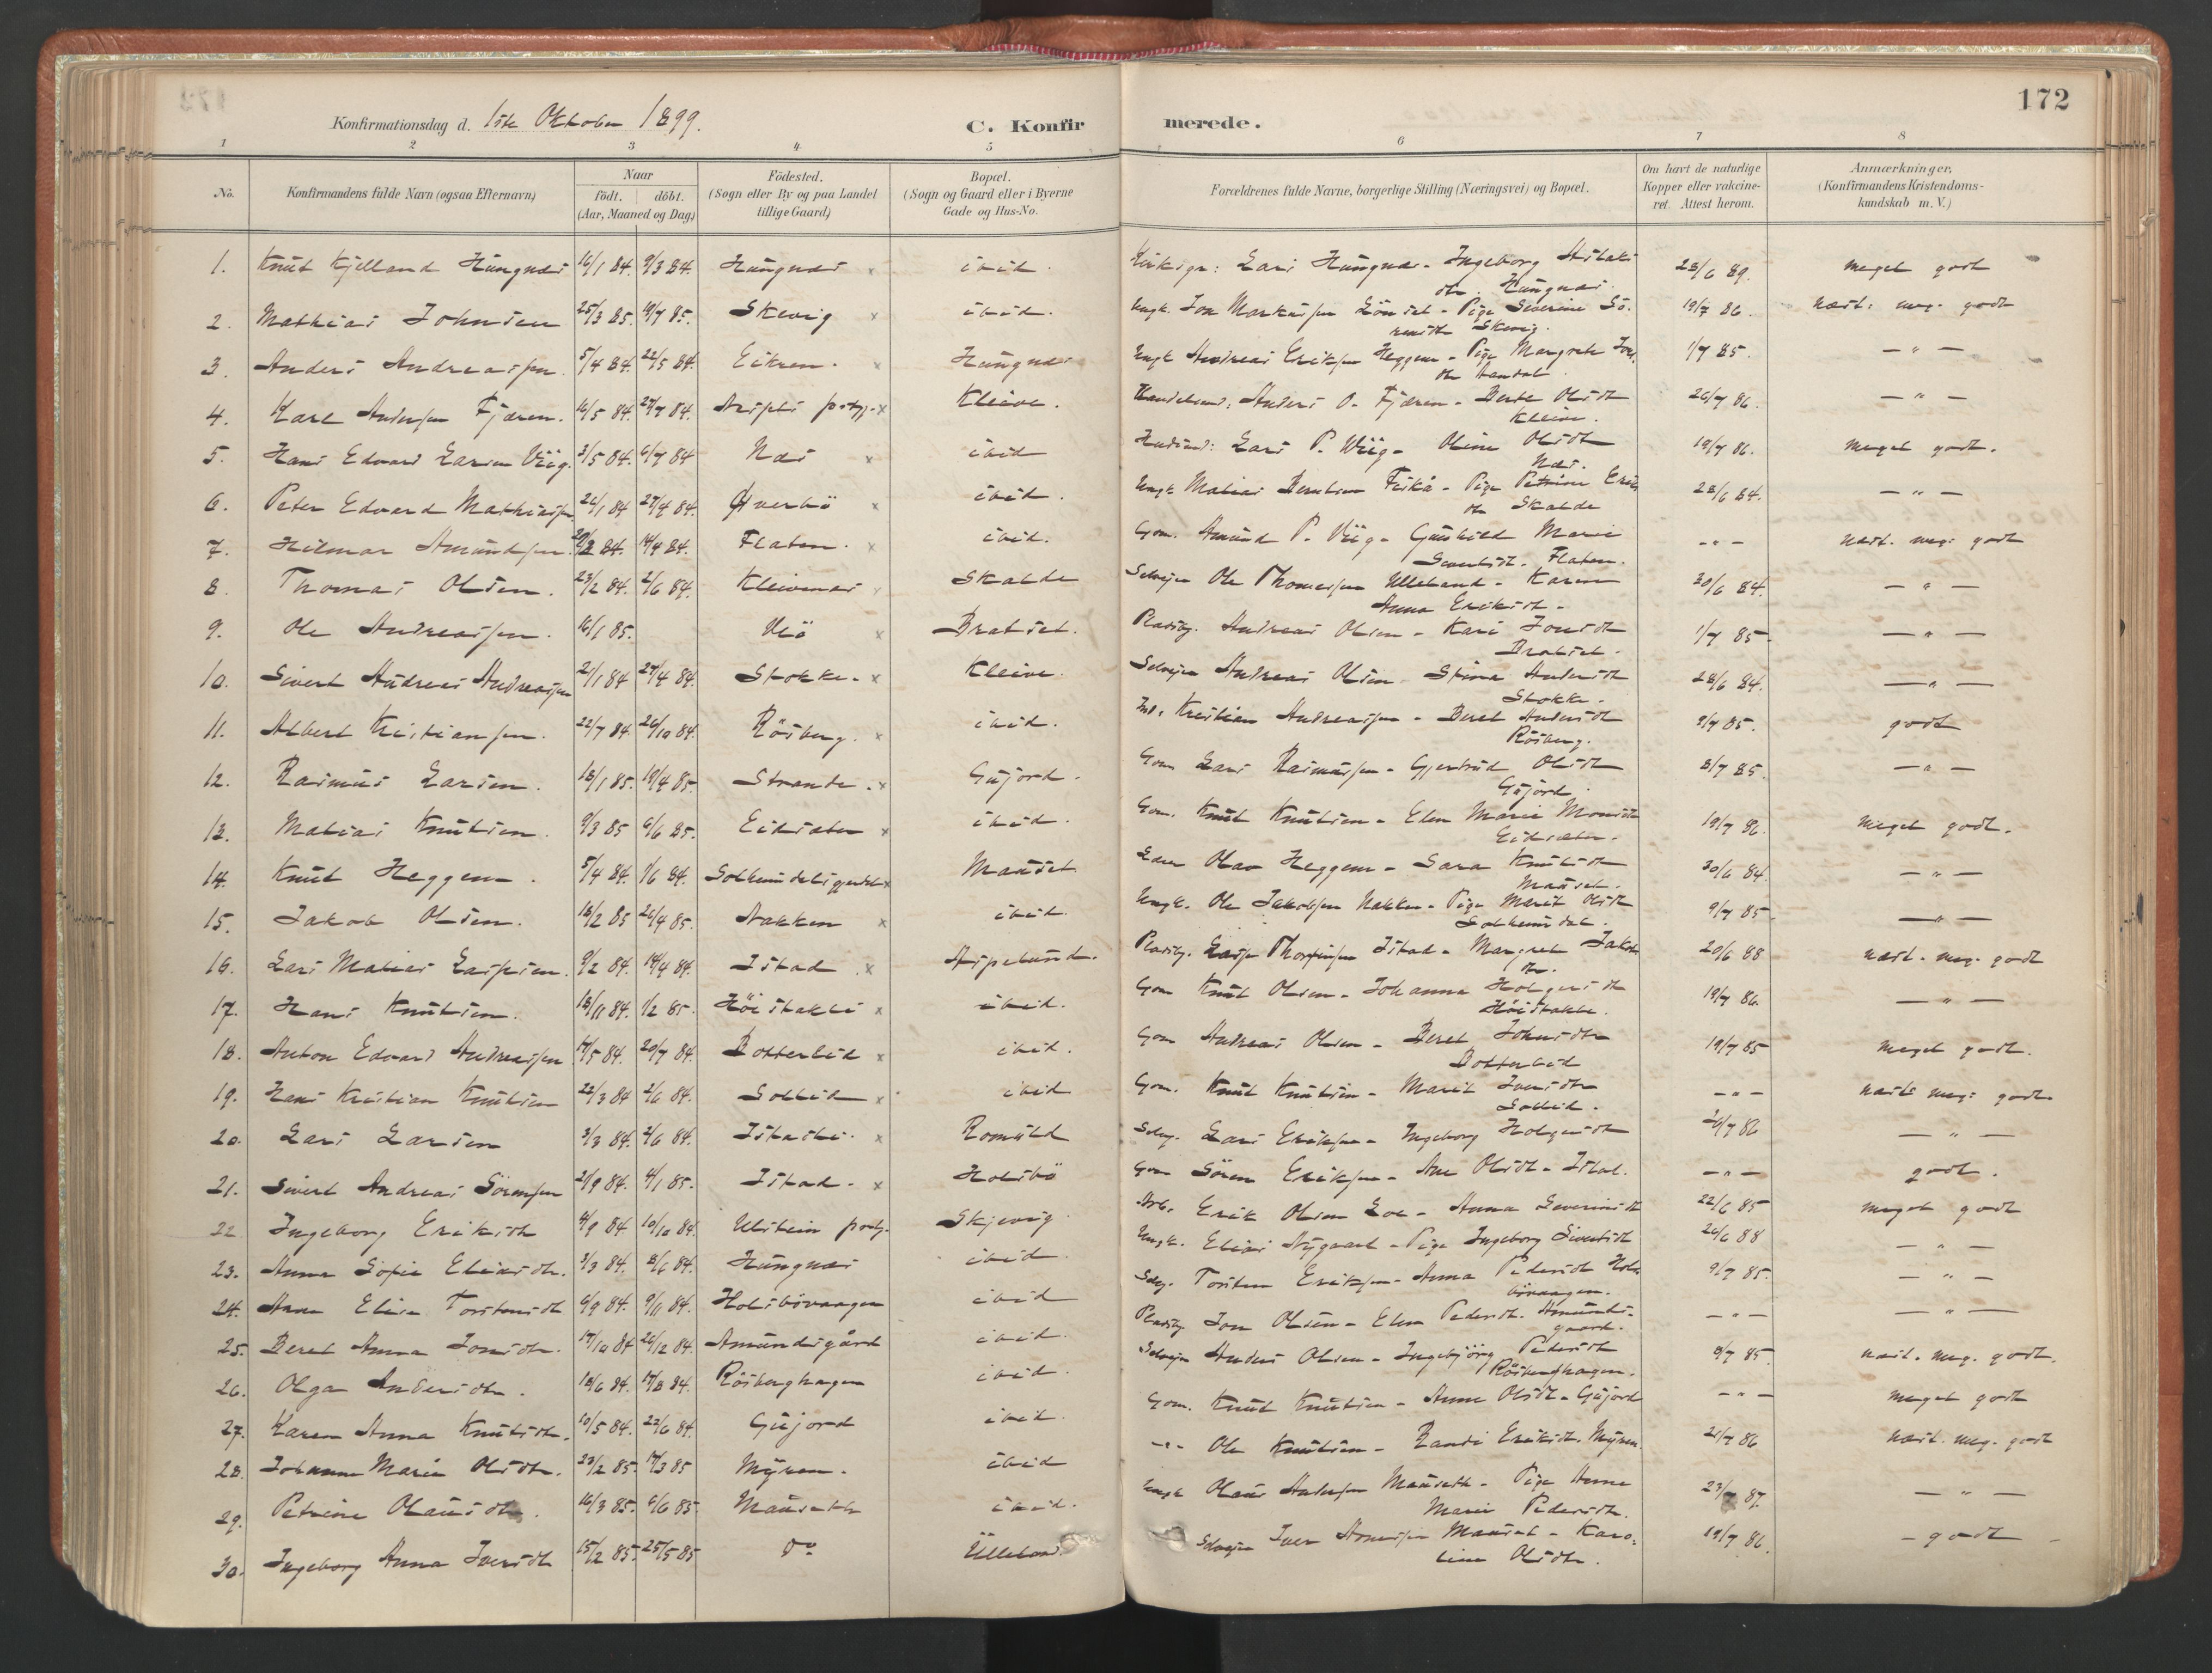 172
Konfirmationsdag d. 1ste Oktober 1899.
C. Konfirmerede.
1 2 3 4 5 6 7 8
No. Konfirmandens fulde Navn (ogsaa Efternavn) Naar født. døbt. (Aar, Maaned og Dag) Födested. (Sogn eller By og paa Landet tillige Gaard) Bopæl. (Sogn og Gaard eller i Byerne Gade og Hus-No. Forældrenes fulde Navne, borgerlige Stilling (Næringsvei) og Bopæl. Om havt de naturlige Kopper eller vakcineret. Attest herom. Anmærkninger. (Konfirmandens Kristendomskundskab m. V.)
1. Knut Kjelland Hungnes 16/1 84. 9/3 84. Hungnes x ibid. Lars Hungnes - Ingeborg 28/6 89. meget godt
dtr. Hungnes.
2. Mathias Johnsen 25/3 85. 19/7 85. Skevig x ibid. Ungk. Jon Markussen - Pige Severine Sö- 19/7 86. næst: meg. godt
rensdtr Skevig.
3. Anders Andreassen 5/4 84. 22/5 84. Eikrem. x Hungnes Ungk Andreas Eriksen Heggem - Pige Margrete 1/7 85. — " —
4. Karl Andersen Fjæren. 16/5 84. 27/7 84. x Kleive. Anders O. Fjæren - Berte Olsdtr 26/7 86. — " —
Kleive.
5. Hans Edvard Larsen Viig. 3/5 84. 6/7 84 Næs x ibid Lars P. Wiig - Oline Olsdtr 19/7 86. meget godt.
Næs.
6. Peter Edvard Mathiassen 26/1 84 27/4 84. Överbö x ibid. Ungk Matias Berntsen - Pige Petrine 28/6 84. — " —
dtr Skalde
7. Hilmar Amundsen 84. 14/4 84. Flaten. x ibid. Gbm. Amund P. Viig - Gunhild Marie - " - næst. meg. godt
Sivertsdtr. Flaten.
8. Thomas Olsen. 23/2 84. 2/6 84. Kleivenes x Skalde Selvejer Ole Thomassen Ulleland - Karen 30/6 84. — " —
Anna Eriksdtr -
9. Ole Andreassen. 16/1 85. Veö x Bratset. Pladsbg. Andreas Olsen - Kari Jonsdtr 1/7 85 — " —
Bratset.
10. Sivert Andreas Andreassen 21/1 84 27/4 84. Stokke. x Kleive. Selvejer Andreas Olsen Stina Andersdtr 28/6 84. — " —
Stokke.
11. Albert Kristiansen. 22/7 84. 26/10 84. Rösberg. x ibid. Ind. Kristian Andreassen - Beret Andersdtr 9/7 85. godt
Rösberg.
12. Rasmus Larsen. 18/1 85. 19/4 85. Strande. x Gujord. Gbm Lars Rasmussen - Gjertrud Olsdtr 8/7 85. — " —
Gujord.
13. Matias Knutsen. 9/3 85 6/6 85. Eidsæter x ibid. Gbm. Knut Knutsen - Elen Marie Monsdtr 19/7 86. meget godt.
Eidsæter.
14. Knut Heggem. 5/4 84. 1/6 84. x Mauset Olav Heggem - Sara Knutsdtr 30/6 84. — " —
Mauset.
15. Jakob Olsen. 18/2 85 26/4 85. Nakken x ibid. Ungk. Ole Jakobsen Nakken - Pige Marit Olsdtr 9/7 85 — " —
Solheimsdal.
16. Lars Matias Larssen. 9/2 84. 14/4 84. Istad. x Aspelund. Pladsbg. Lars Istad - Margret Jakobs 20/6 88 næst. meg. godt
dtr.
17. Hans Knutsen. 18/11 84. 1/2 85. Höistakli x ibid. Gbm Knut Olsen - Johanna Holgersdtr 19/7 86. — " —
Höistakli.
18. Anton Edvard Andreassen 17/5 84. 20/7 84. Botterlid x ibid. Gbm Andreas Olsen - Beret Johnsdtr 19/7 85 meget godt.
Botterlid
19. Hans Kristian Knutsen 22/3 84 2/6 84. Sollid x ibid Gbm. Knut Knutsen - Marit Iversdtr - " - næst: meg: godt.
Sollid.
20. Lars Larsen 3/3 84. 2/6 84. x Romuld Selvj. Lars Eriksen - Ingeborg Holgersdtr 20/7 86 — " —
21. Sivert Andreas Sörensen 21/9 84. 4/1 85. Istad. x Holsbö Gbm Sören Eriksen - Ane Olsdtr - Istad. - " - godt.
22 Ingeborg Eriksdtr 4/9 84 10/10 84. Ulstein Skjevig Arb. Erik Olsen Loe - Anna Severinsdtr 22/6 85 meget godt
23. Anna Sofie Eliasdtr. 3/3 84. 8/6 84. Hungnes ibid Ungk. Elias Nygaard - Pige Ingeborg Sivertsdtr 26/6 88 — " —
24. Anna Elise Torstensdtr 6/9 84. 9/11 84. Holsbövaagen ibid Selvj. Torsten Eriksen - Anna Pedersdtr Hols- 9/7 85. — " —
bövaagen.
25. Beret Anna Jonsdtr. 17/10 84 26/12 84. Amundsgård ibid. Pladsbg. Jon Olsen - Elen Pedersdtr. Amunds- - " - — " —
gaard.
26. Olga Andersdtr. 18/6 84. 17/8 84. Rösberghagen ibid. Selvejer Anders Olsen - Ingebjörg Pedersdtr 9/7 85. næst. meg. godt.
Rösberghagen.
27. Karen Anna Knutsdtr. 10/5 84. 22/6 84. Gujord ibid. Gbm. Knut Knutsen - Anne Olsdtr - Gujord - " - meget godt
28. Johanna Marie Olsdtr. 23/2 85. 17/3 85 Myren. ibid - " - Ole Knutsen - Randi Eriksdtr. Myren. 21/7 86 næst. meg. godt
29. Petrine Olausdtr. 16/3 85. 6/6 85 Mauseth ibid. Ungk Olaus Andersen Mauseth - Pige Anne 23/7 87. — " —
Marie Pedersdtr.
30. Ingeborg Anna Iversdtr 15/2 85. 25/5 85 Do Ulleland. Selvejer Iver Mauset - Karo- 19/7 86. - godt
line Olsdtr.